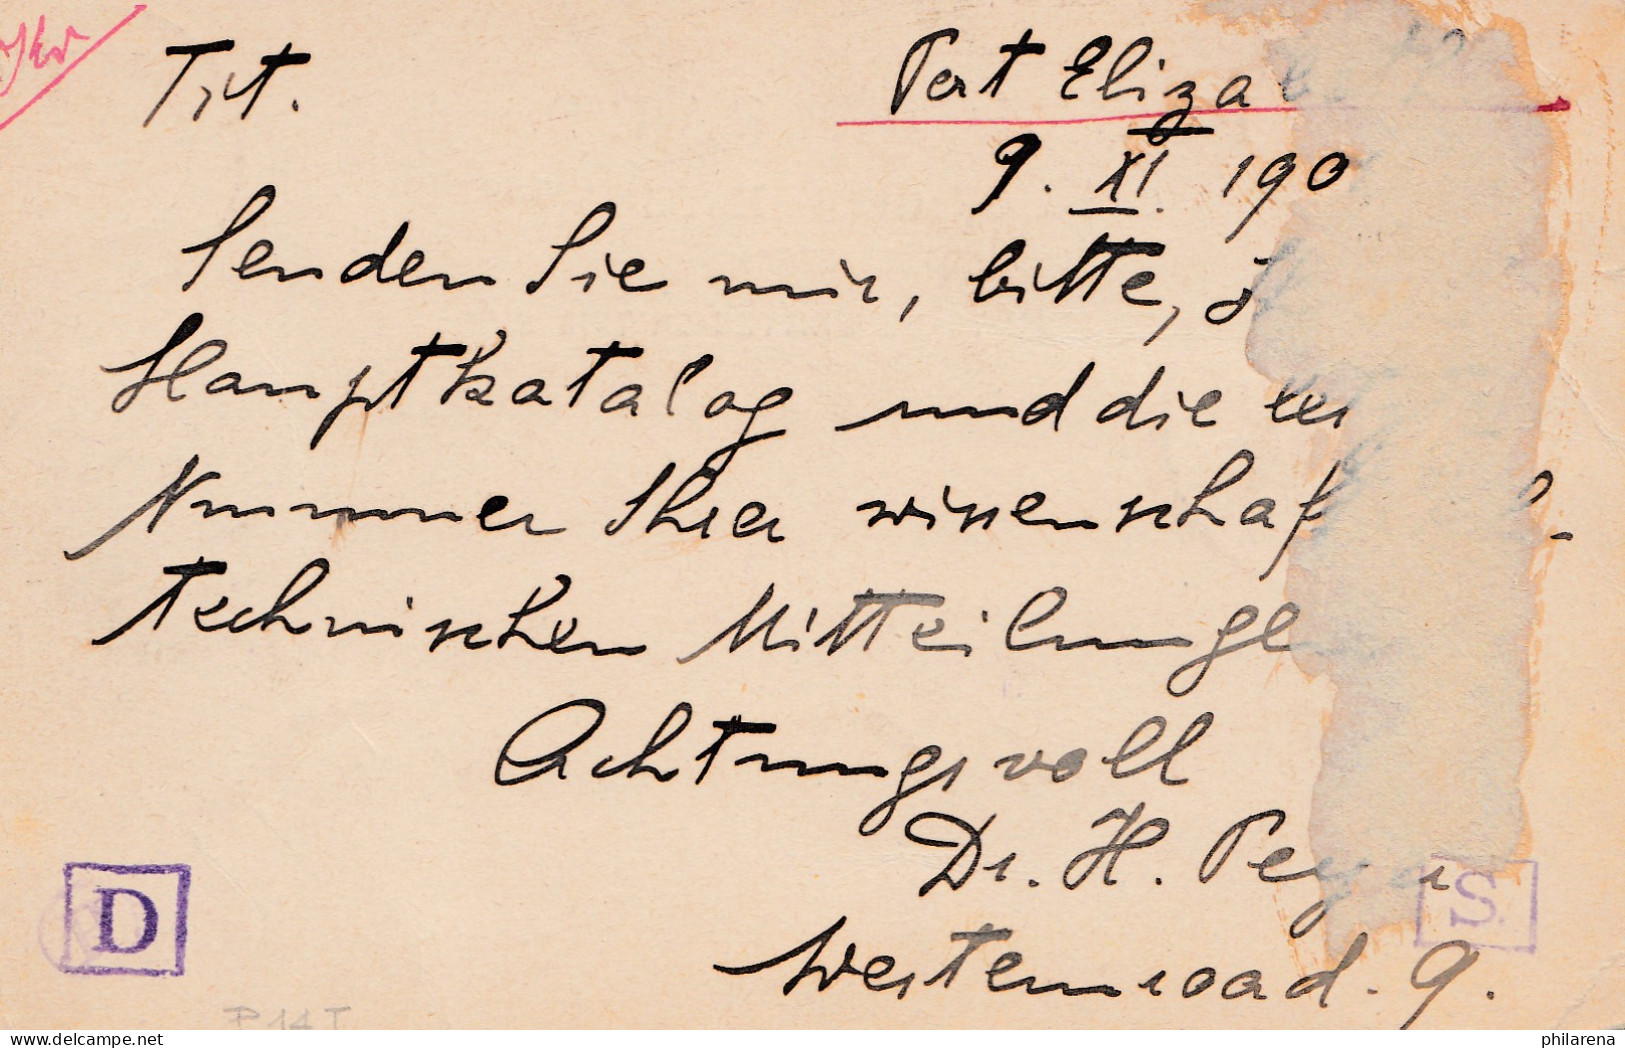 Tit.
Port Eliza
9. XI. 190
Senden Sie mir, bitte,
Hauptkatalog und die
Nummer Ihrer wissenschaf
technischen Mitteilunge
Achtungsvoll
Dr. H. Peyer
Westernroad. 9.
D
S.
P 14 I
philarena